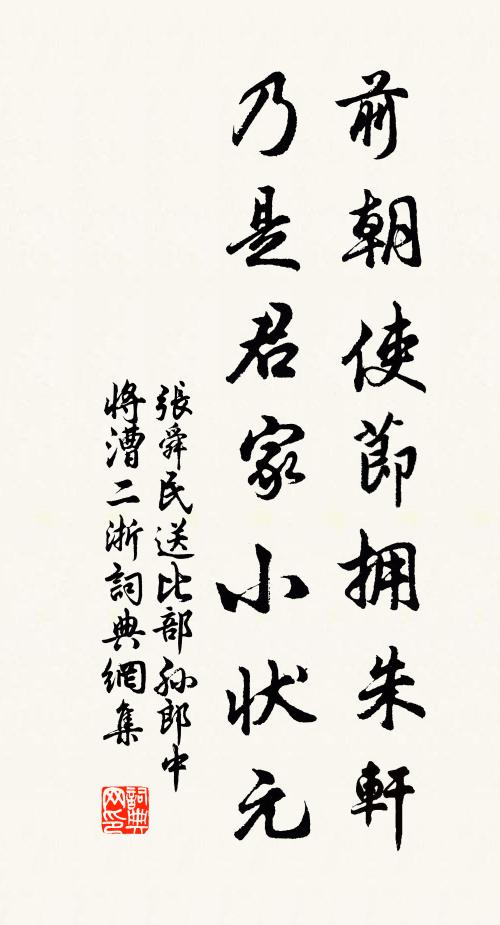 前朝使節拥朱軒
乃是君家小状元
張舜民送比部孙郎中
將漕二浙詞典網集
詞典网印